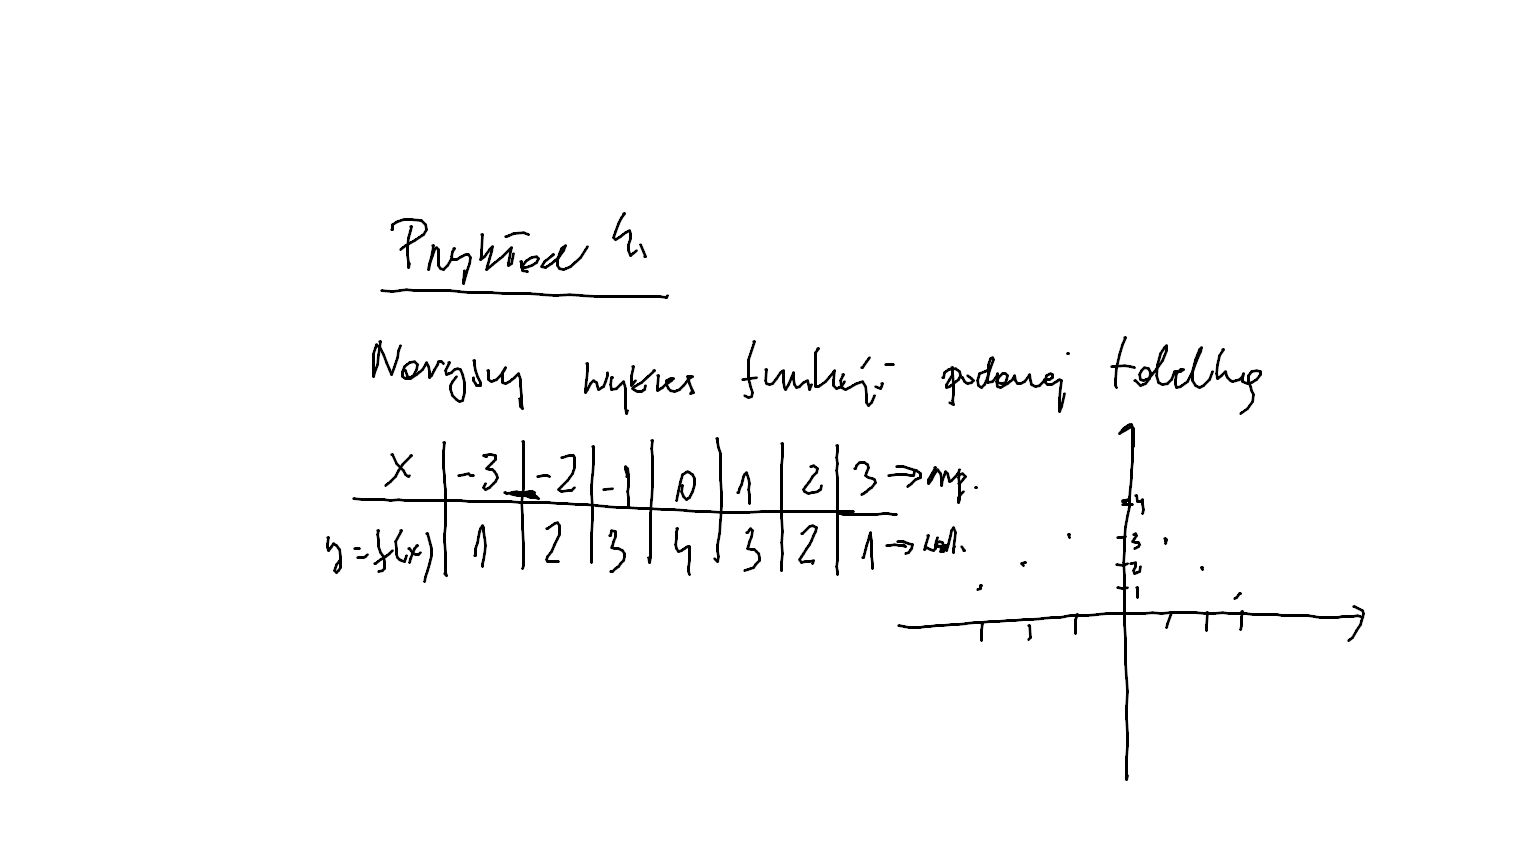 Przykład 4.
Narysuj wykres funkcji podanej tabelką
x -3 -2 -1 0 1 2 3 → arg.
y = f(x) 1 2 3 4 3 2 1 → wart.
4
3
2
1